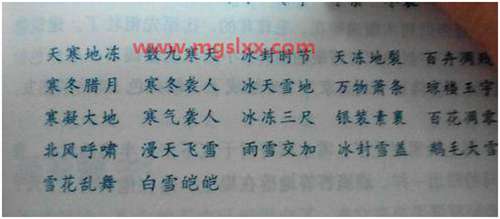 www.mgslxx.com
天寒地冻 数九寒天 冰封时节 天冻地裂 百卉凋残
寒冬腊月 寒冬袭人 冰天雪地 万物萧条 琼楼玉宇
寒凝大地 寒气袭人 冰冻三尺 银装素裹 百花凋零
北风呼啸 漫天飞雪 雨雪交加 冰封雪盖 鹅毛大雪
雪花乱舞 白雪皑皑